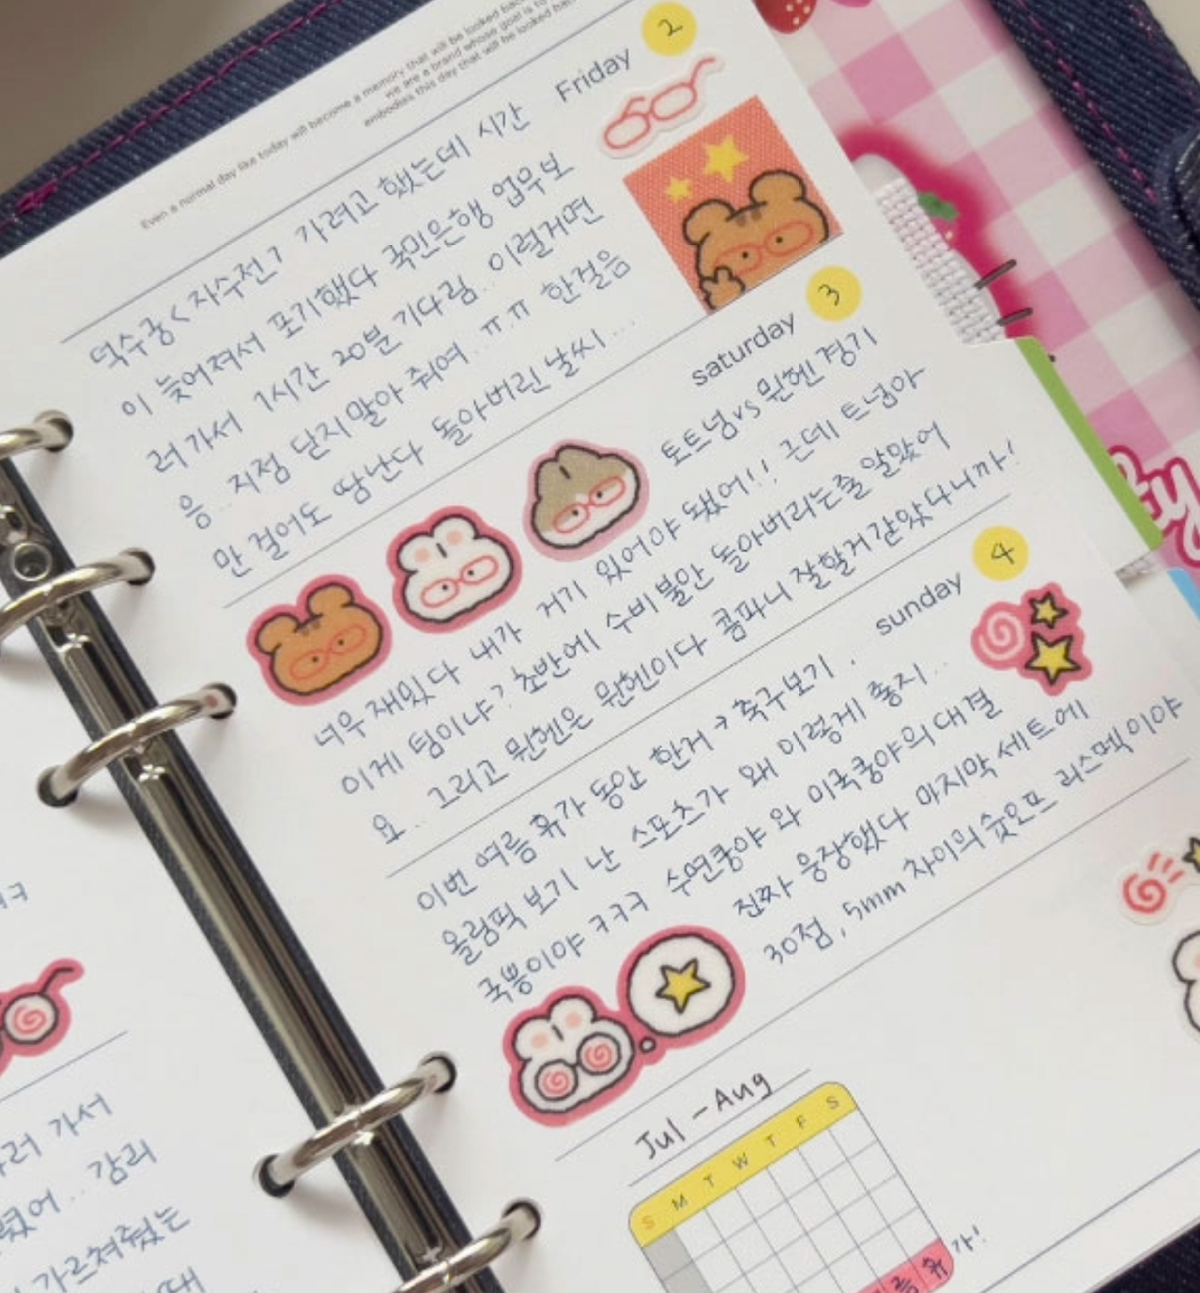 Even a normal day like today will become a memory that will be looked back
we are a brand whose goal is to
embodies this day that will be looked back
Friday 2
덕수궁 <자수전> 가려고 했는데 시간
이 늦어져서 포기했다 국민은행 업무보
러 가서 1시간 20분 기다림.. 이럴거면
응.. 지점 닫지말아 줘여.. ㅠㅠ 한걸음
만 걸어도 땀난다 돌아버린 날씨...
saturday 3
토트넘vs 뮌헨 경기
너무 재밌다 내가 거기 있어야 됐어!! 근데 트넘아
이게 팀이냐? 초반에 수비 불안 돌아버리는줄 알았어
요.. 그리고 뮌헨은 뮌헨이다 콤파니 잘할거 같았다니까!
sunday 4
이번 여름 휴가 동안 한거 → 축구보기.
올림픽 보기 난 스포츠가 왜 이렇게 좋지..
국뽕이야 ㅋㅋㅋ 수연쿵야 와 이쿡쿵야의 대결
진짜 웅장했다 마지막 세트에
30점, 5mm 차이의 슛오프 리스펙이야
Jul - Aug
S M T W T F S
름 휴가!
가서
감리
가르쳐줬는
때